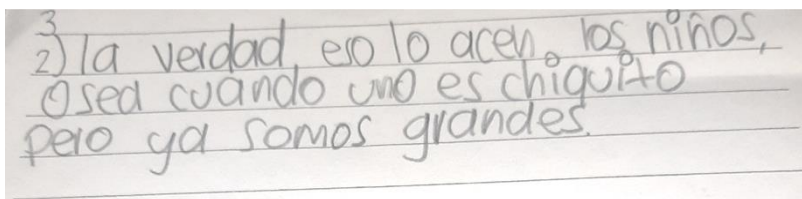 3
2) la verdad eso lo acen los niños,
Osea cuando uno es chiquito
pero ya somos grandes.